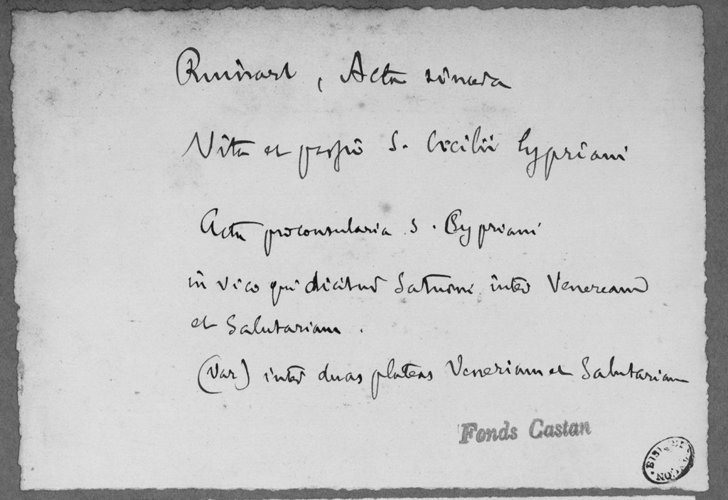 Ruinart, Acta sincera
Vita et passio S. Cecilii Cypriani
Acta proconsularia S. Cypriani
in vico qui dicitur Saturni inter Veneream
et Salutariam.
(Var) inter duas plateas Veneriam et Salutariam
Fonds Castan